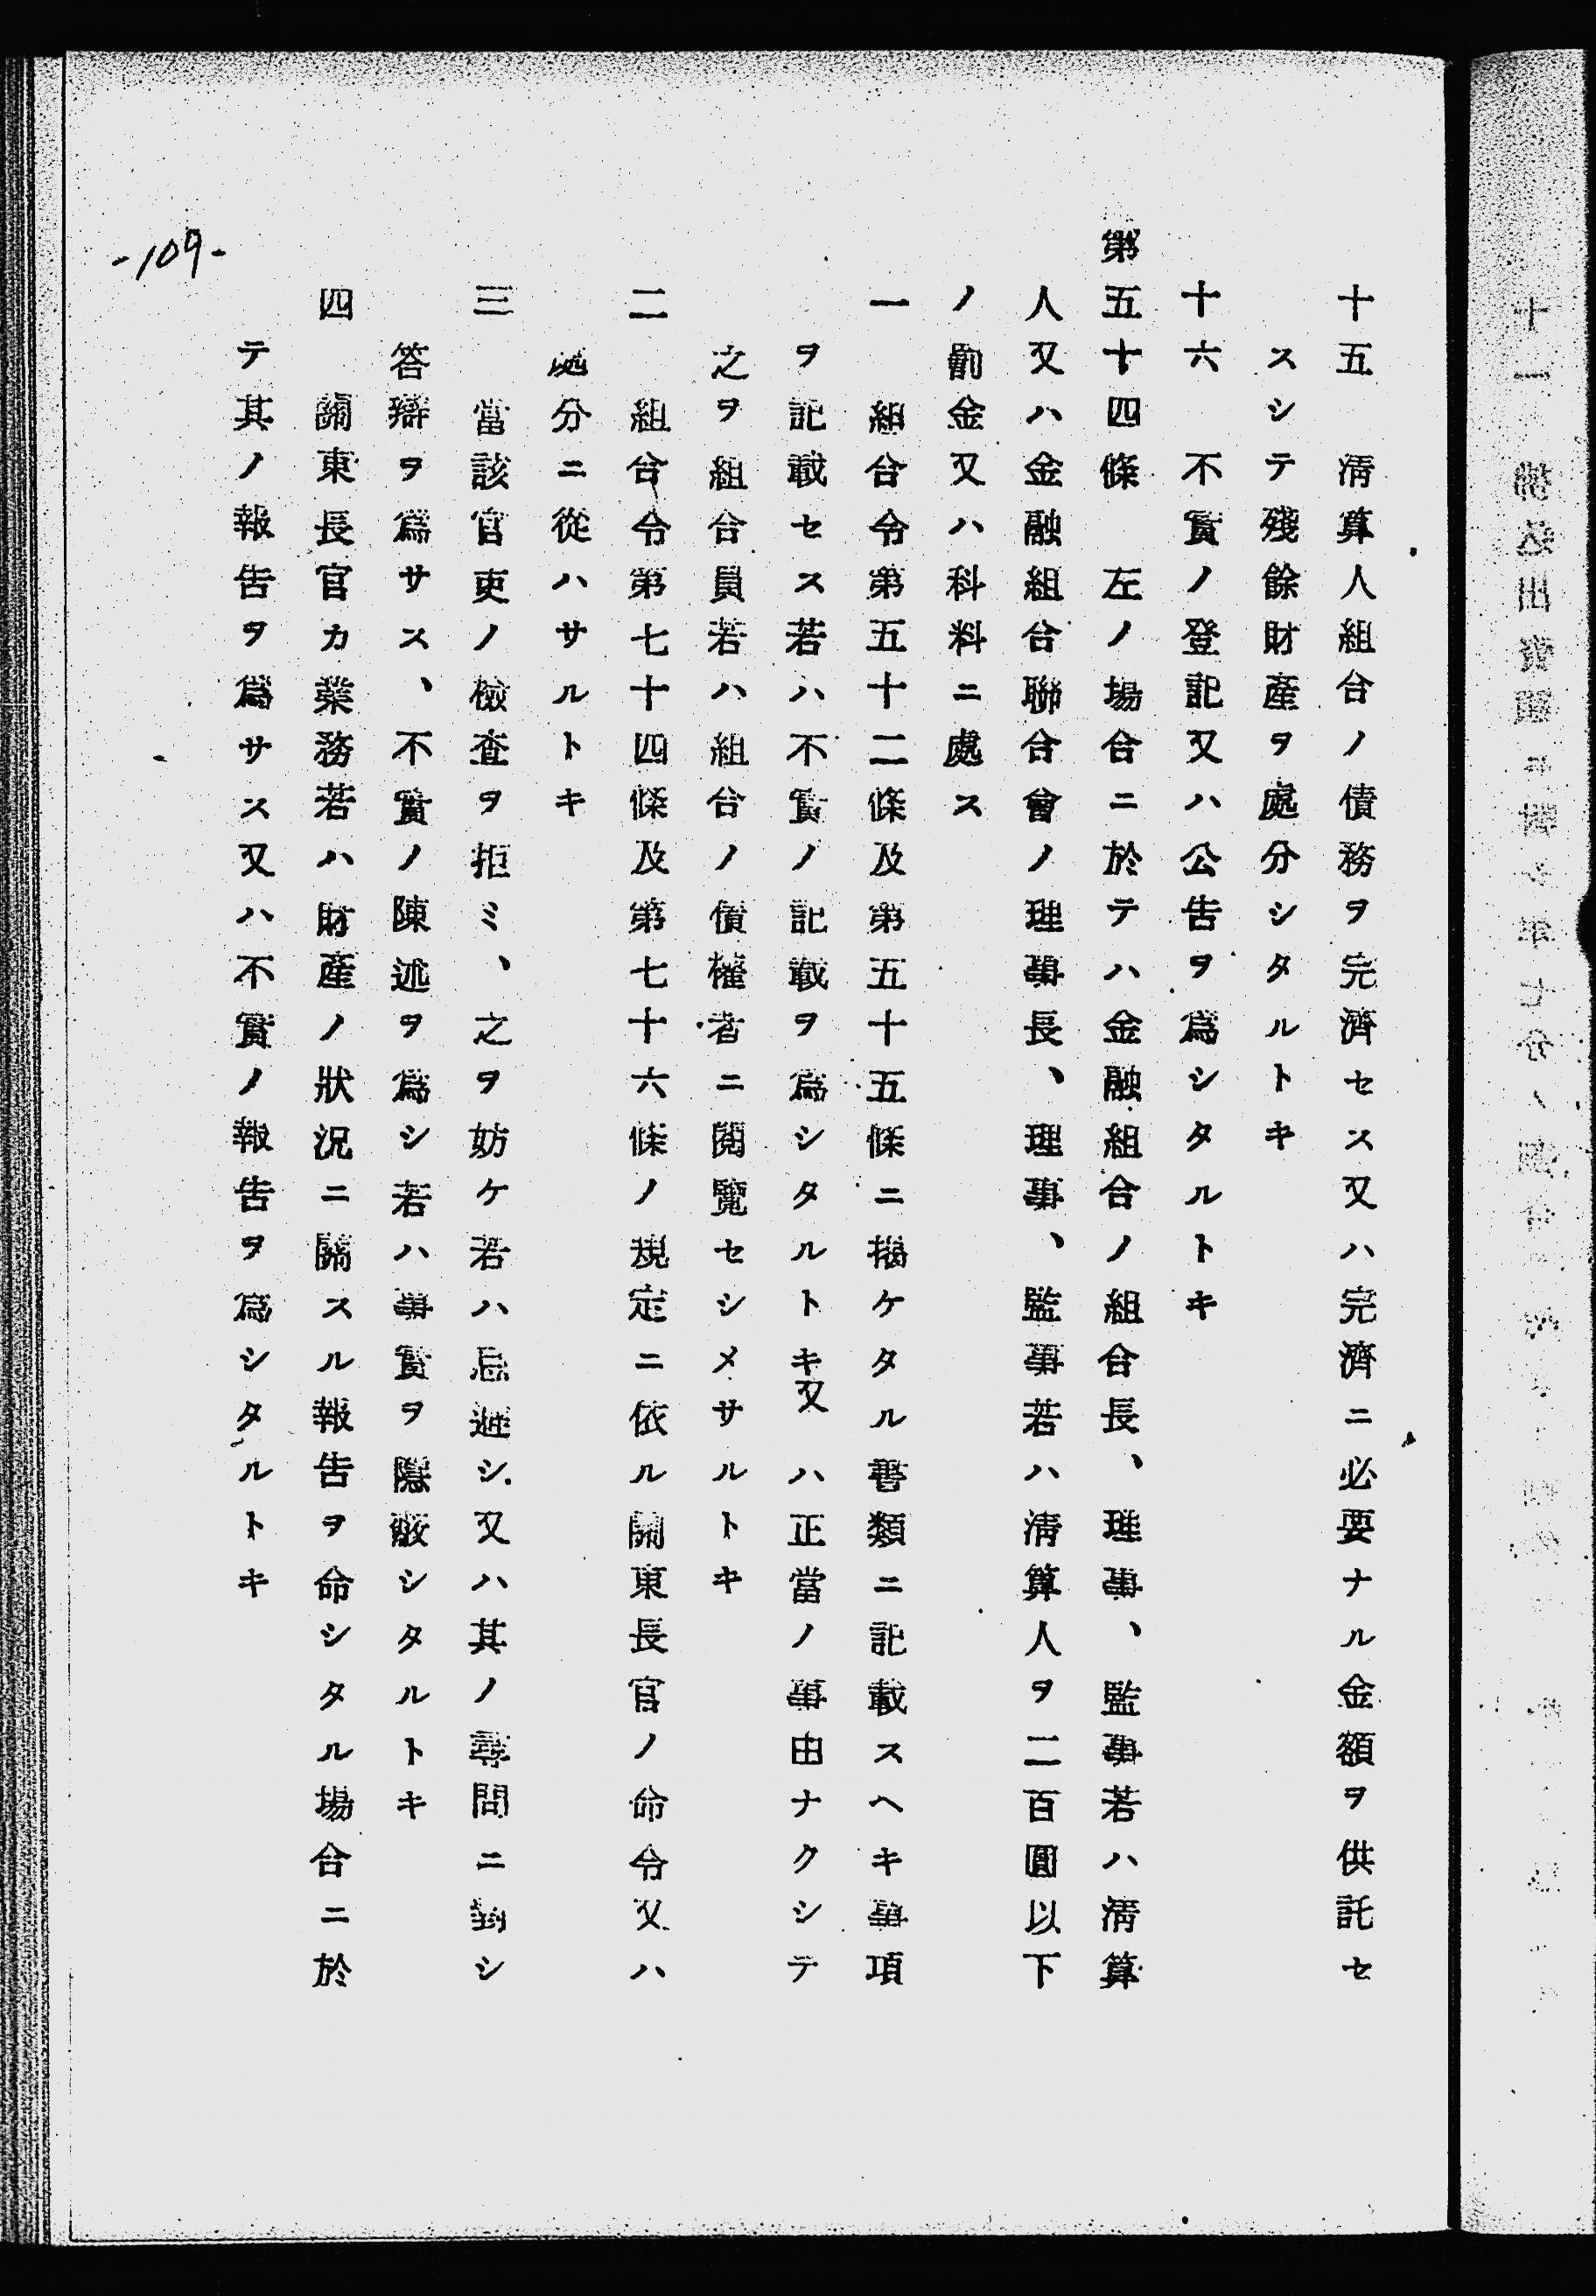 十五 淸算人組合ノ債務ヲ完濟セス又ハ完濟ニ必要ナル金額ヲ供託セ
スシテ殘餘財產ヲ處分シタルトキ
十六 不實ノ登記又ハ公告ヲ爲シタルトキ
第五十四條 左ノ場合ニ於テハ金融組合ノ組合長、理事、監事若ハ淸算
人又ハ金融組合聯合會ノ理事長、理事、監事若ハ淸算人ヲ二百圓以下
ノ罰金又ハ科料ニ處ス
一 組合令第五十二條及第五十五條ニ揭ケタル書類ニ記載スヘキ事項
ヲ記載セス若ハ不實ノ記載ヲ爲シタルトキ又ハ正當ノ事由ナクシテ
之ヲ組合員若ハ組合ノ債權者ニ閱覽セシメサルトキ
二 組合令第七十四條及第七十六條ノ規定ニ依ル關東長官ノ命令又ハ
處分ニ從ハサルトキ
三 當該官吏ノ檢査ヲ拒ミ、之ヲ妨ケ若ハ忌避シ又ハ其ノ尋問ニ對シ
答辯ヲ爲サス、不實ノ陳述ヲ爲シ若ハ事實ヲ隱蔽シタルトキ
四 關東長官カ業務若ハ財產ノ狀況ニ關スル報告ヲ命シタル場合ニ於
テ其ノ報告ヲ爲サス又ハ不實ノ報告ヲ爲シタルトキ
-109-